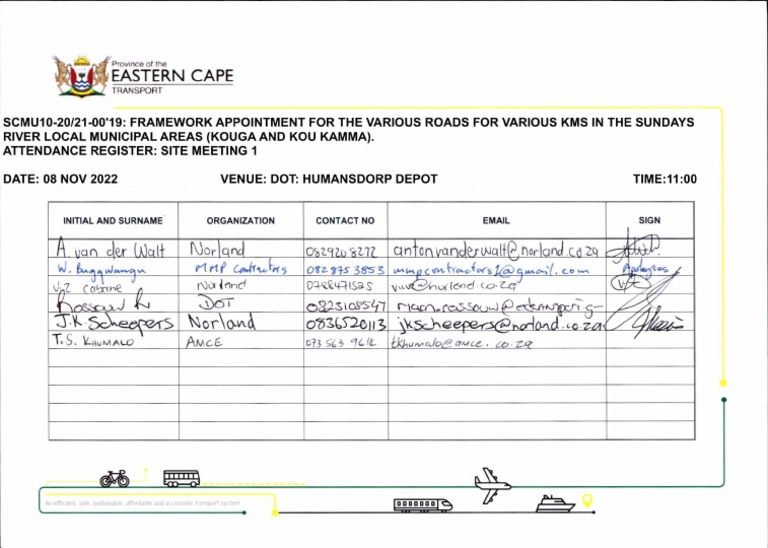 Province of the
EASTERN CAPE
TRANSPORT
SCMU10-20/21-00'19: FRAMEWORK APPOINTMENT FOR THE VARIOUS ROADS FOR VARIOUS KMS IN THE SUNDAYS
RIVER LOCAL MUNICIPAL AREAS (KOUGA AND KOU KAMMA).
ATTENDANCE REGISTER: SITE MEETING 1
DATE: 08 NOV 2022 VENUE: DOT: HUMANSDORP DEPOT TIME:11:00
INITIAL AND SURNAME ORGANIZATION CONTACT NO EMAIL SIGN
A. van der Walt Norland 0829208272 antonvanderwalt@norland.co.za
W. MMP Contractors 0828753853 mmpcontractors1@gmail.com Apologies
Norland 0788471525
Rossouw R DOT 0823108547
J.K. Scheepers Norland 0836520113 jkscheepers@norland.co.za
T.S. KHUMALO AMCE 073 563 9612 tkhumalo@amce.co.za
An efficient, safe, sustainable, affordable and accessible transport system